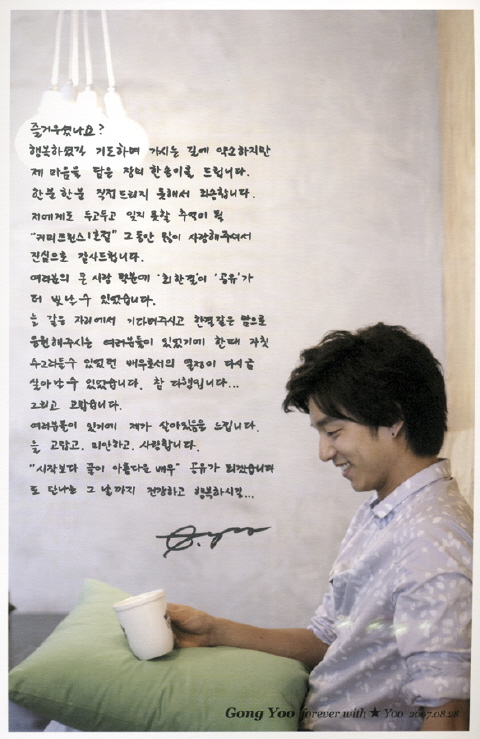 즐거우셨나요?
행복하셨길 기도하며 가시는 길에 약소하지만
제 마음을 담은 장미 한송이를 드립니다.
한분한분 직접드리지 못해서 죄송합니다.
저에게도 두고두고 잊지 못할 추억이 될
"커피프린스1호점" 그동안 많이 사랑해주셔서
진심으로 감사드립니다.
여러분의 큰 사랑 덕분에 '최한결'이 '공유'가
더 빛날수 있었습니다.
늘 같은 자리에서 기다려주시고 한결같은 맘으로
응원해주시는 여러분들이 있었기에 한때 자칫
수그러들수 있었던 배우로서의 열정이 다시금
살아날 수 있었습니다. 참 다행입니다...
그리고 고맙습니다.
여러분들이 있기에 제가 살아있음을 느낍니다.
늘 고맙고, 미안하고, 사랑합니다.
"시작보다 끝이 아름다운 배우" 공유가 되겠습니다
또 만나는 그 날까지 건강하고 행복하시길...
Gong Yoo forever with ★ Yoo 2007.08.28